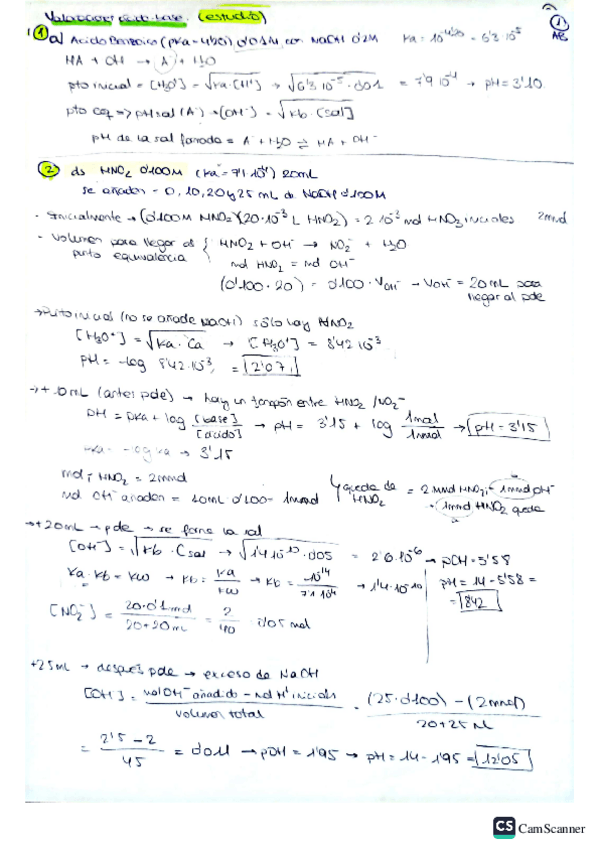 Valoraciones ácido-base (estudio)
1
AB
1 a) Acido Benzoico (pka = 4'20), 0'01M, con NaOH 0'2M Ka = 10^-4'20 = 6'3·10^-5
HA + OH⁻ → A⁻ + H2O
pto inicial = [H3O⁺] = √Ka·[HA] → √6'3·10^-5·0'01 = 7'9·10^-4 → pH = 3'10
pto eq => pH sal (A⁻) → [OH⁻] = √Kb·[sal]
pH de la sal formada = A⁻ + H2O ⇌ HA + OH⁻
2 HNO2 0'100M (Ka = 7'1·10^-4) 20mL
se añaden = 0, 10, 20 y 25 mL de NaOH 0'100M
· Inicialmente → (0'100M HNO2)(20·10^-3 L HNO2) = 2·10^-3 mol HNO2 iniciales 2mmol
- Volumen para llegar al punto equivalencia { HNO2 + OH⁻ → NO2⁻ + H2O
mol HNO2 = mol OH⁻
(0'100·20) = 0'100·VOH⁻ → VOH⁻ = 20mL para llegar al pde
→ Pto inicial (no se añade NaOH) sólo hay HNO2
[H3O⁺] = √Ka·Ca → [H3O⁺] = 8'42·10^-3
pH = -log 8'42·10^-3 = 2'07
→ + 10mL (antes pde) → hay un tampón entre HNO2/NO2⁻
pH = pKa + log [base]/[ácido] → pH = 3'15 + log 1mmol/1mmol → pH = 3'15
pKa = -log Ka → 3'15
mol i HNO2 = 2mmol
mol OH⁻ añaden = 10mL·0'100 = 1mmol
queda de HNO2 = 2mmol HNO2 i - 1mmol OH⁻
= 1mmol HNO2 queda
→ +20mL → pde → se forma la sal
[OH⁻] = √Kb·Csal → √1'4·10^-10·0'05 = 2'6·10^-6 → pOH = 5'58
Ka·Kb = Kw → Kb = Ka/Kw → Kb = 10^-14/7'1·10^-4 → 1'4·10^-10
pH = 14 - 5'58 =
= 8'42
[NO2⁻] = 20·0'1mol/20+20mL = 2/40 = 0'05 mol
+25mL → después pde → exceso de NaOH
[OH⁻] = mol OH⁻ añadido - mol H⁺ iniciales / volumen total = (25·0'100) - (2mmol) / 20+25mL
= 2'5 - 2 / 45 = 0'011 → pOH = 1'95 → pH = 14 - 1'95 = 12'05
CS CamScanner